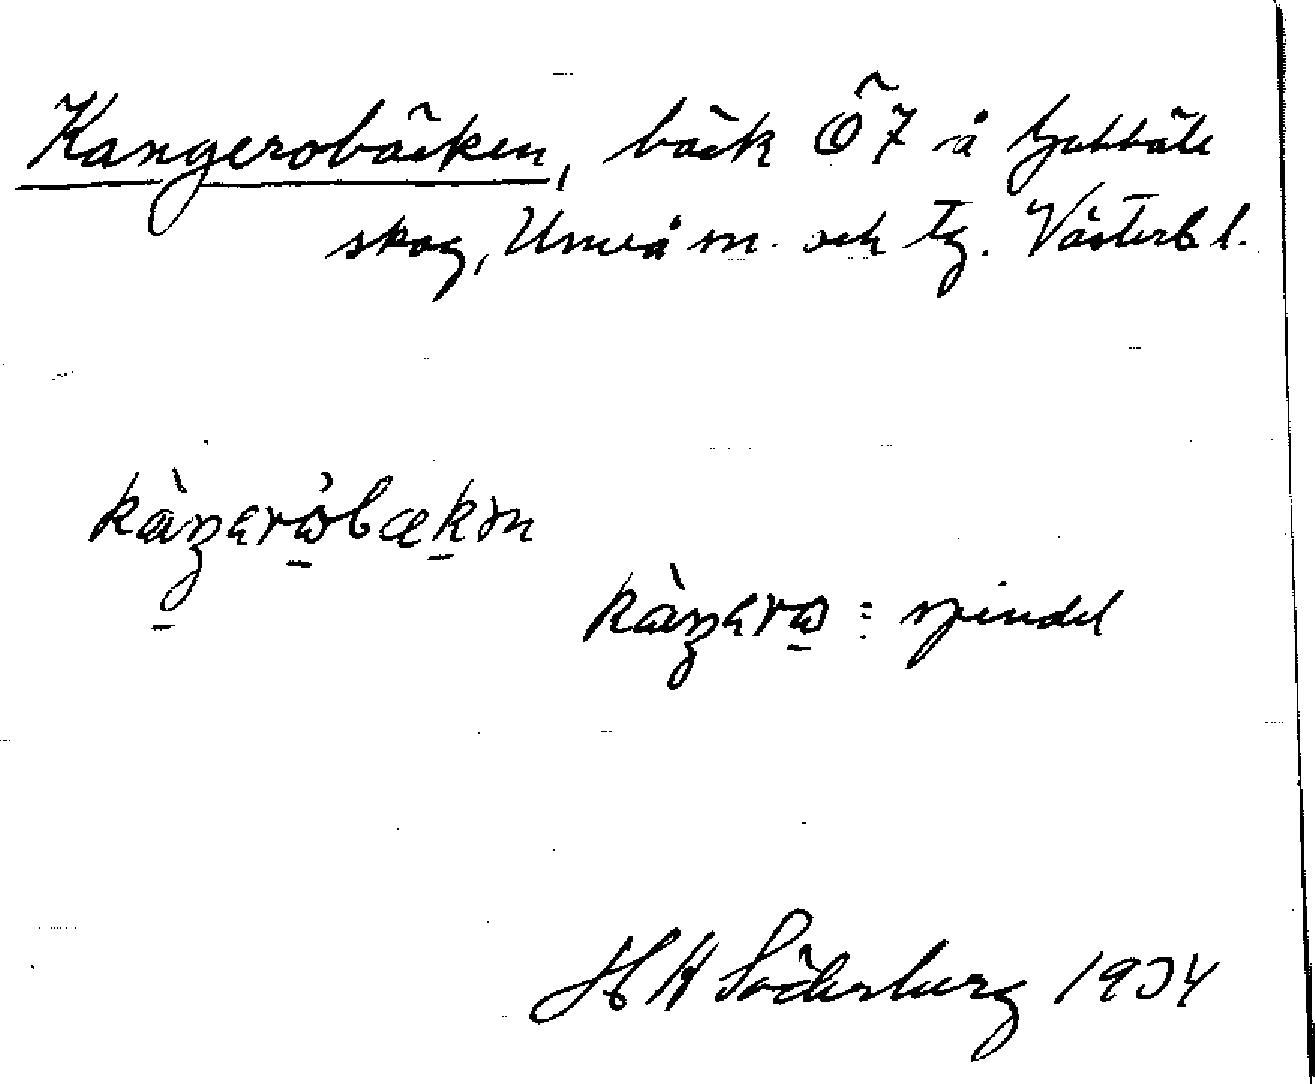 Kangerobäcken, bäck Ö7 å
skog, Umeå m. och tg. Västerb l.
kàŋərὼbækən
kàŋərω = spindel
H H Söderberg 1934